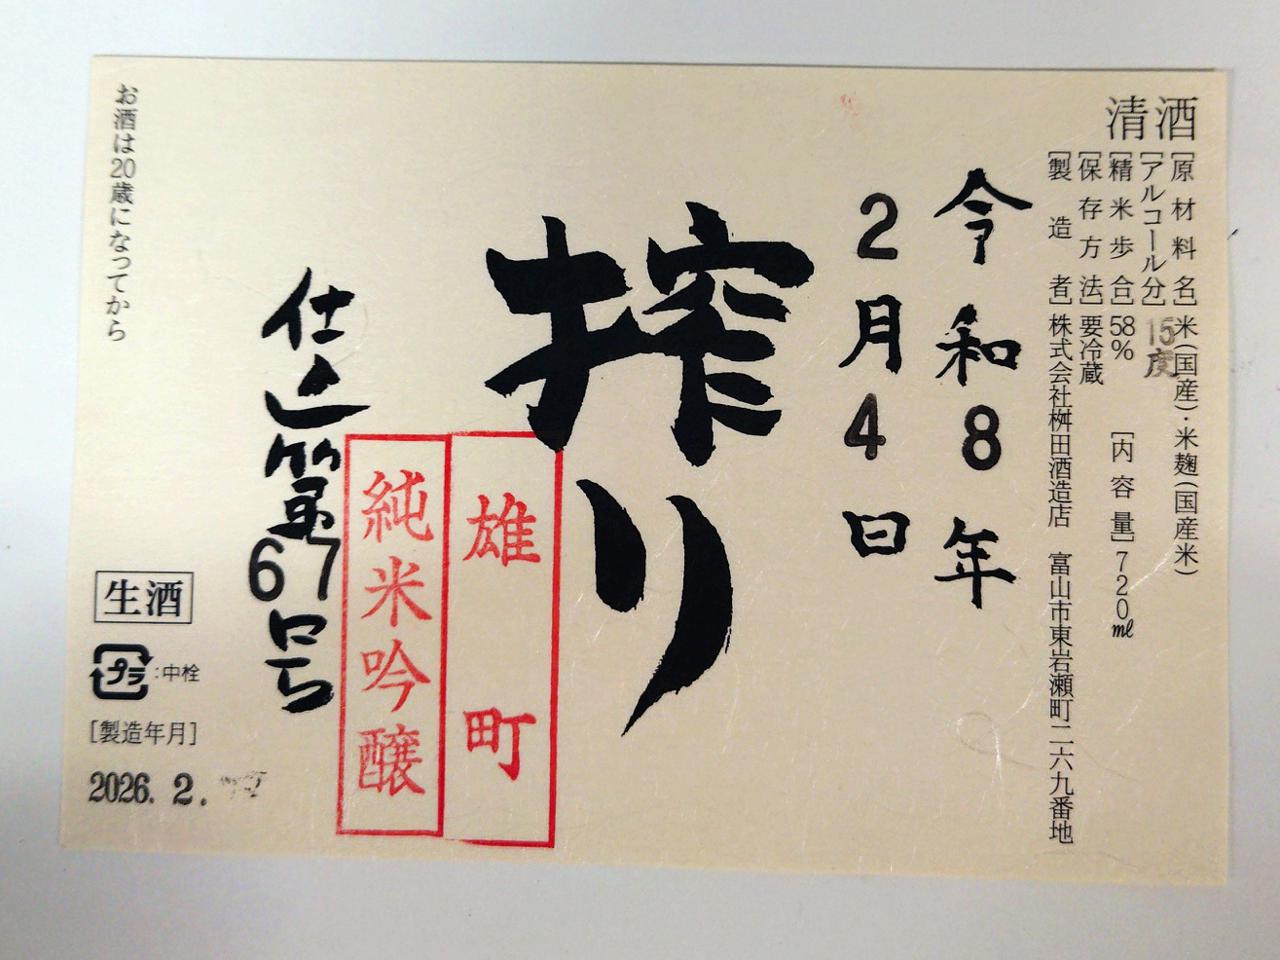 清酒
[原材料名]米(国産)・米麹(国産米)
[アルコール分]15度
[精米歩合]58% [内容量]720ml
[保存方法]要冷蔵
[製造者]株式会社桝田酒造店 富山市東岩瀬町二六九番地
令和8年
2月4日
搾り
雄町
純米吟醸
仕込第67号
お酒は20歳になってから
生酒
プラ:中栓
[製造年月]
2026.2.